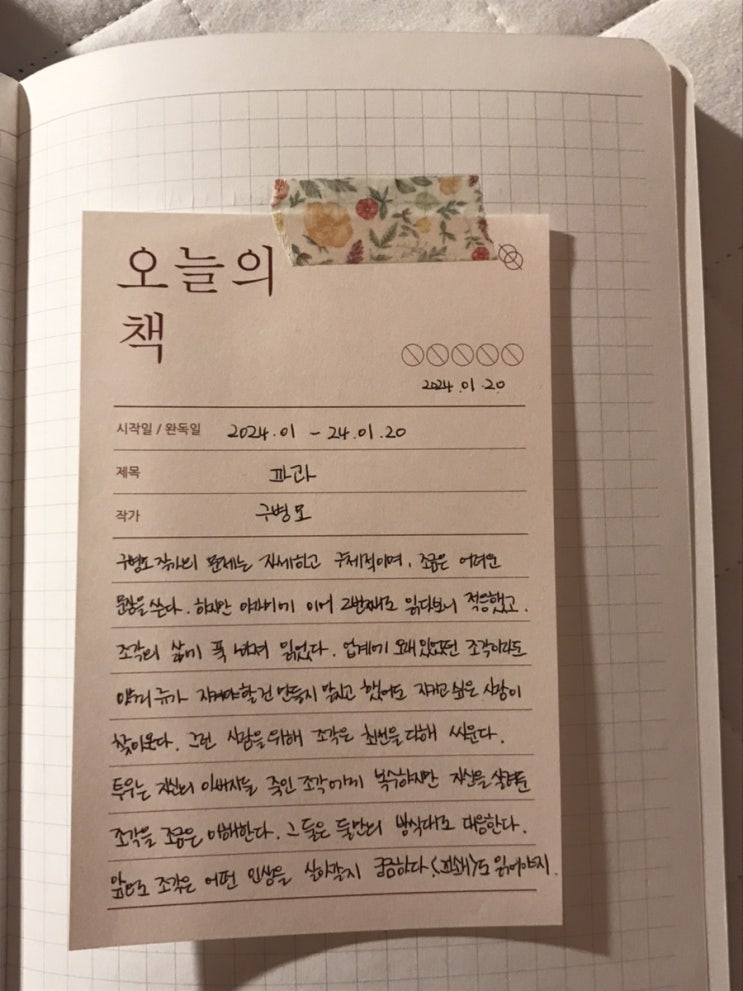 오늘의
책
2024.01.20
시작일 / 완독일 2024.01 - 24.01.20
제목 파과
작가 구병모
구병모 작가의 문체는 자세하고 구체적이며, 조금은 어려운
문장을 쓴다. 하지만 아가미에 이어 2번째로 읽다보니 적응했고,
조각의 삶에 푹 빠져 읽었다. 업계에 오래 있었던 조각이라도
류가 지켜야할건 만들지 말자고 했어도 지키고 싶은 사람이
찾아온다. 그런 사람을 위해 조각은 최선을 다해 싸운다.
투우는 자신의 아버지를 죽인 조각에게 복수하지만 자신을 살려둔
조각을 조금은 이해한다. 그 둘은 둘만의 방식대로 대응한다.
앞으로 조각은 어떤 인생을 살아갈지 궁금하다 <파쇄>도 읽어야지.